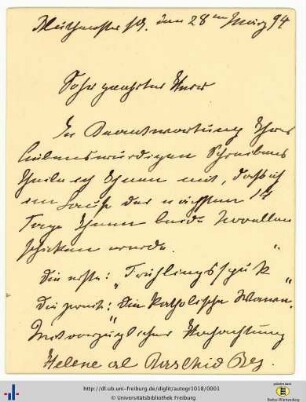 den 28ten März 94
Sehr geehrter Herr
In Beantwortung Ihres
liebenswürdigen Schreibens
theile ich Ihnen mit, daß ich
im Laufe der nächsten 14
Tage Ihnen beide Novellen
schicken werde.
die erste: "Frühlingsspuk"
die zweite: "Die Katholische
Mit vorzüglicher Hochachtung
Helene al Raschid Bey.
http://dl.ub.uni-freiburg.de/diglit/autogr1018/0001
© Universitätsbibliothek Freiburg